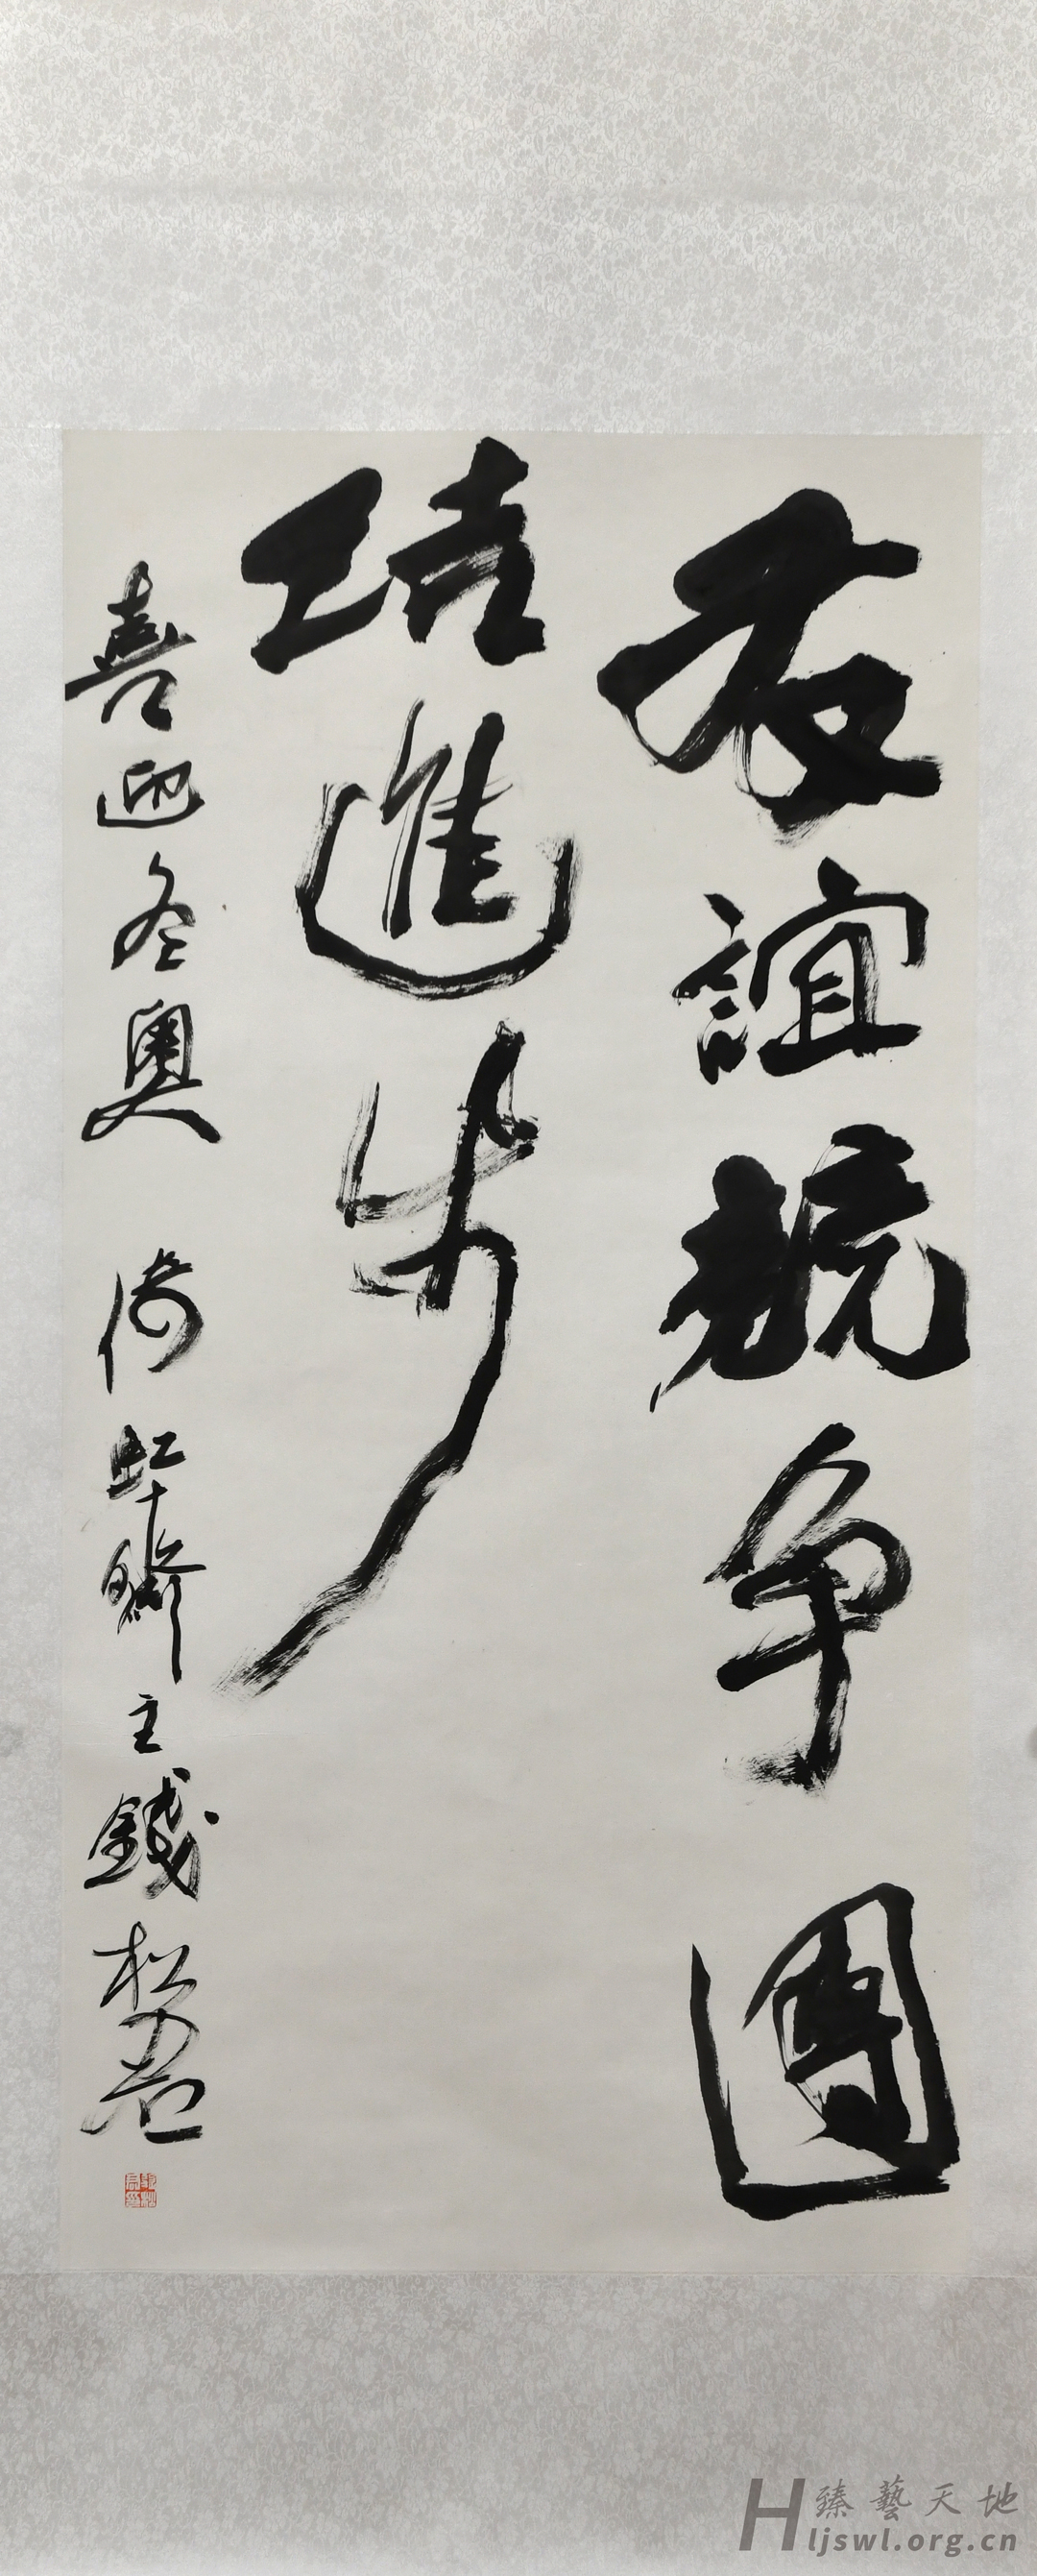 友誼競争團
結進步
喜迎冬奥 倚虹齋主錢松君
臻藝天地
Hljswl.org.cn